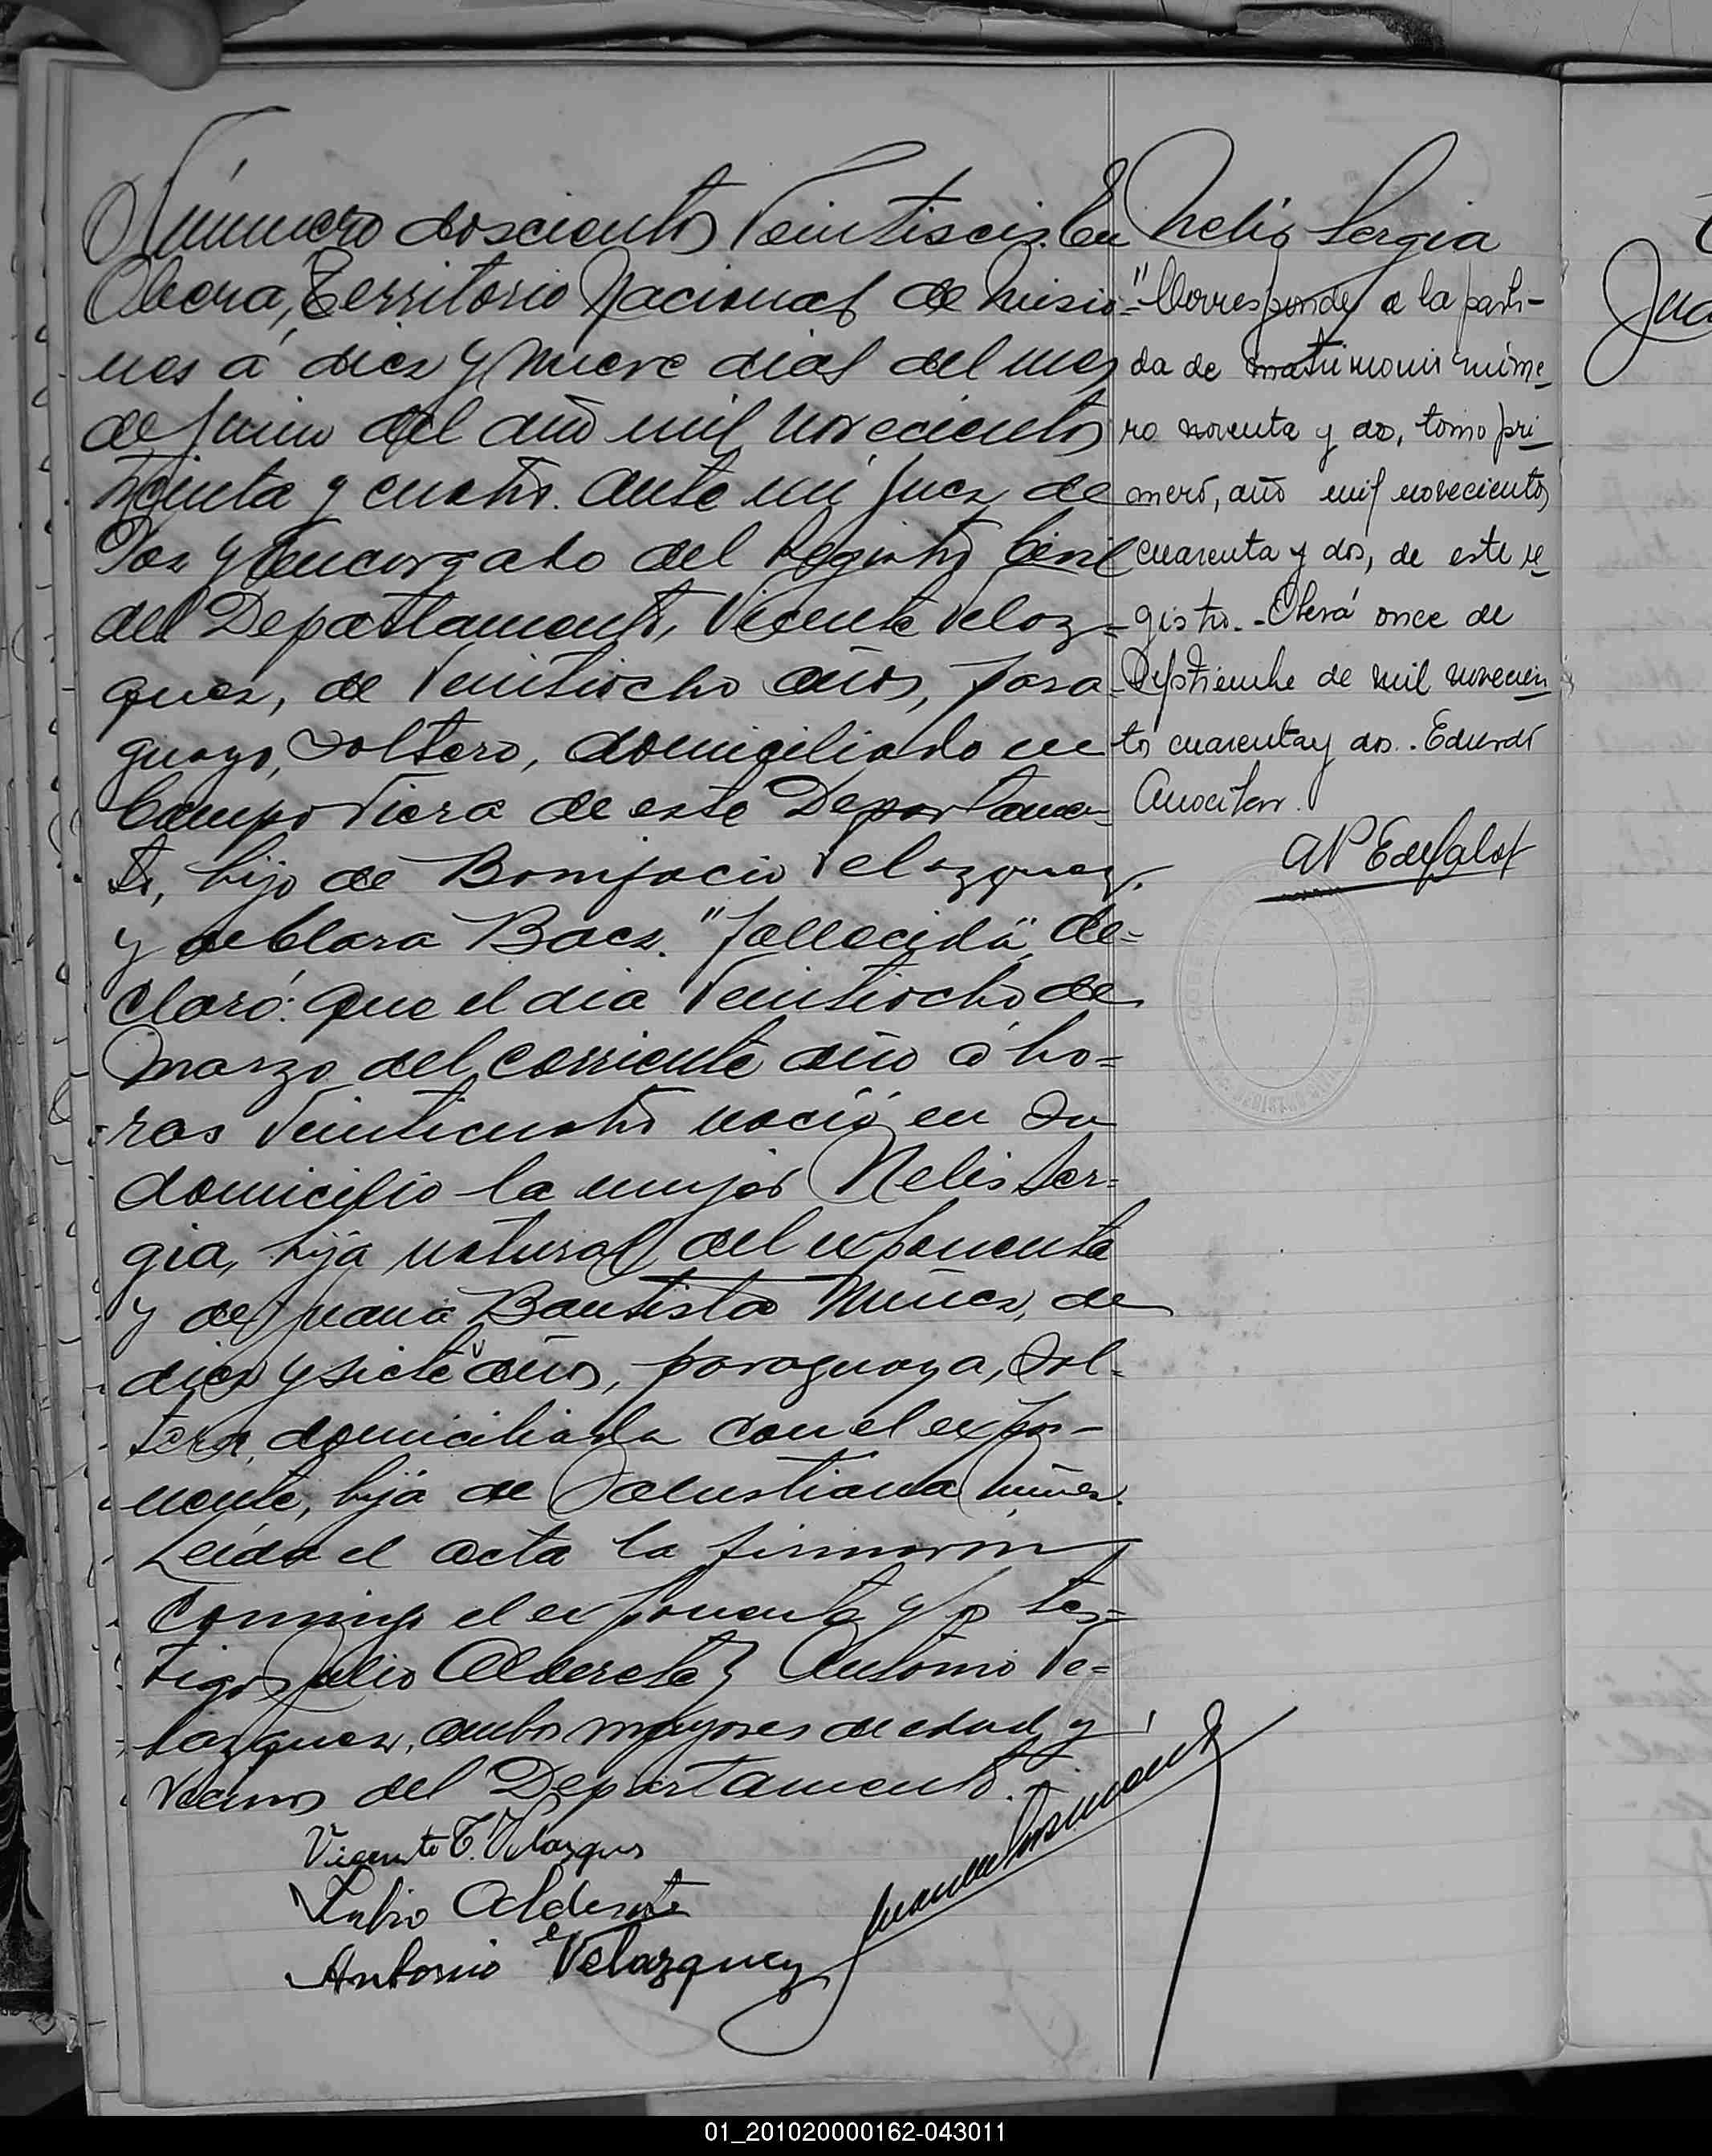 Número doscientos Veintiseis. En
Obera, Territorio Nacional de Misio=
nes á diez y nueve dias del mes
de Junio del año mil novecientos
treinta y cuatro. Ante mi Juez de
Paz y Encargado del Registro Civil
del Departamento, Vicente Velaz=
quez, de Veintiocho años, para-
guayo, soltero, domiciliado en
Campo Viera de este Departamen=
to, hijo de Bonifacio Velazquez,
y de Clara Baez. "fallecida", de=
claró: Que el dia Veintiocho de
Marzo del corriente año á ho=
ras Veinticuatro nació en su
domicilio la mujer Nelis Ser=
gia, hija natural del exponente
y de Juana Bautista Nuñez, de
diez y siete años, paraguaya, sol-
tera, domiciliada con el expo-
nente, hija de Salustiana Nuñez.
Leída el acta la firmaron
conmigo el exponente y los tes=
tigos Julio Alderete y Antonio Ve=
lazquez, ambos mayores de edad y
vecinos del Departamento.
Vicente T. Velazques
Julio Alderete
Antonio Velazquez
Nelis Sergia
"Corresponde a la parti-
da de matrimonio núme-
ro noventa y dos, tomo pri-
mero, año mil novecientos
cuarenta y dos, de este re-
gistro.- Oberá once de
Septiembre de mil novecien
tos cuarenta y dos.. Eduardo
01_201020000162-043011